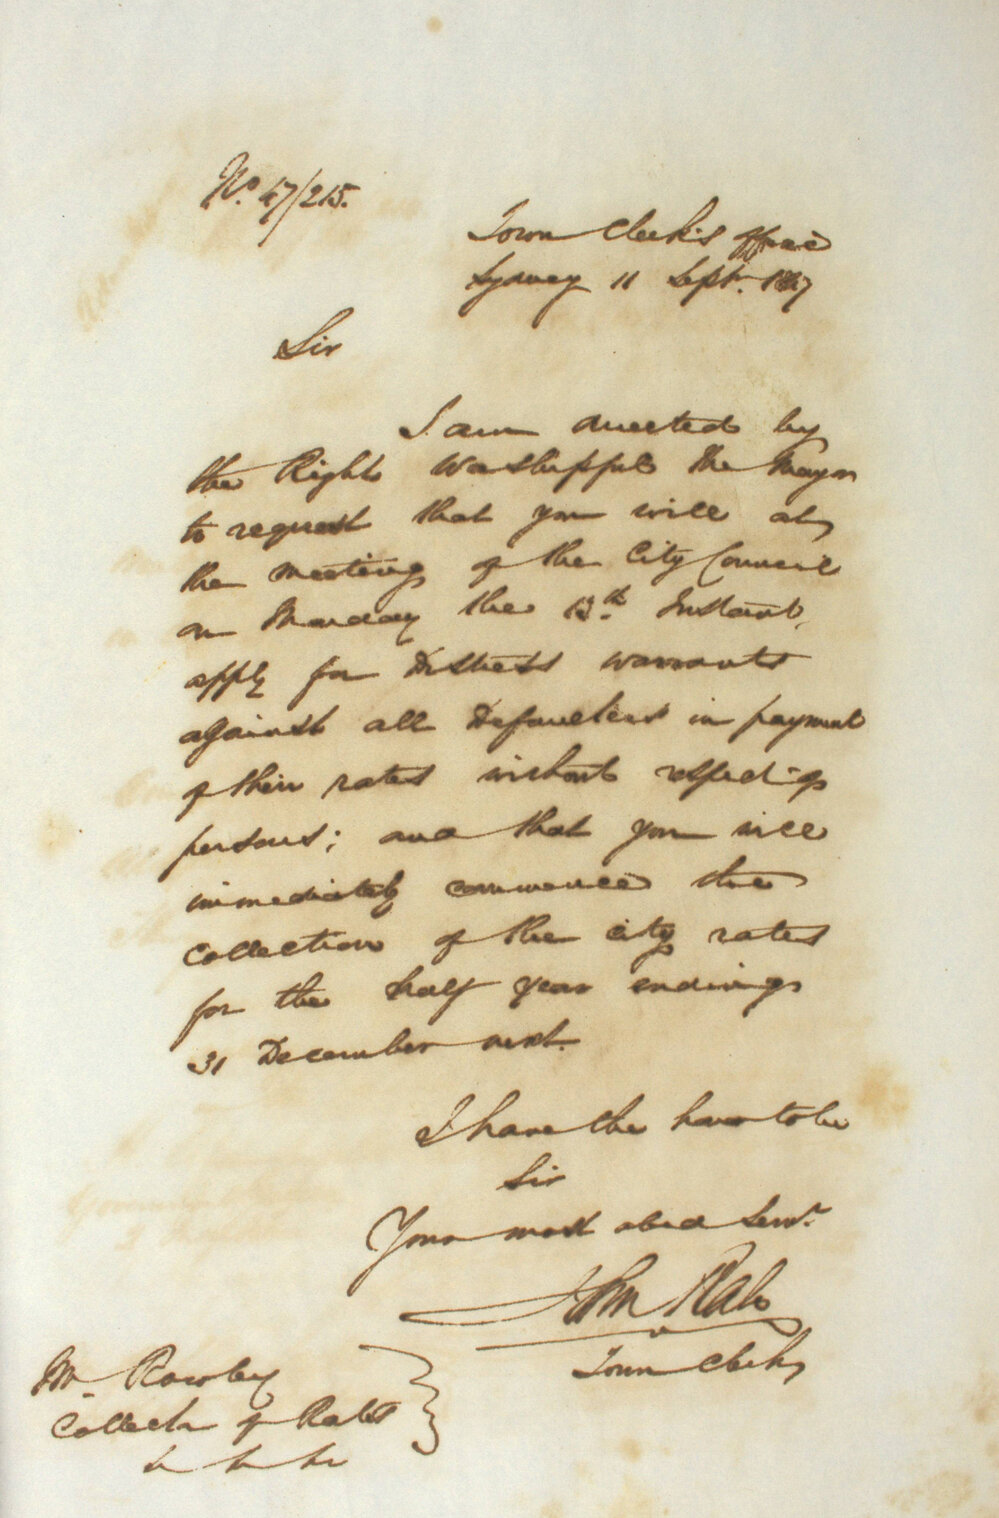 No. 47/215.
Town Clerk's Office
Sydney 11 Septr. 1847
Sir
I am directed by
the Right Worshipful the Mayor
to request that you will at
the meeting of the City Council
on Monday the 13th Instant,
apply for Distress warrants
against all Defaulters in payment
of their rates without respect of
persons; and that you will
immediately commence the
Collection of the city rates
for the half year ending
31 December next.
I have the honor to be
Sir
Your most obed Servt.
John Rae
Town Clerk
Mr. Rowley
Collector of Rates